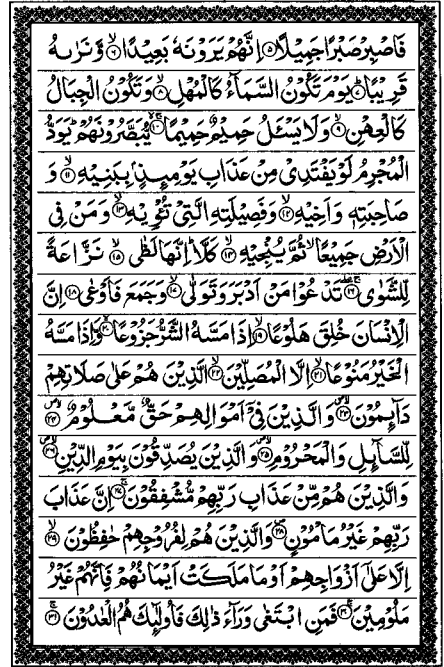 فَاصْبِرْ صَبْرًا جَمِيْلًا ۝۵ اِنَّهُمْ يَرَوْنَهٗ بَعِيْدًا ۝۶ وَّ نَرٰىهُ
قَرِيْبًا ۝۷ يَوْمَ تَكُوْنُ السَّمَآءُ كَالْمُهْلِ ۝۸ وَ تَكُوْنُ الْجِبَالُ
كَالْعِهْنِ ۝۹ وَ لَا يَسْـَٔلُ حَمِيْمٌ حَمِيْمًا ۝۱۰ يُّبَصَّرُوْنَهُمْ يَوَدُّ
الْمُجْرِمُ لَوْ يَفْتَدِيْ مِنْ عَذَابِ يَوْمِىِٕذٍۭ بِبَنِيْهِ ۝۱۱ وَ
صَاحِبَتِهٖ وَ اَخِيْهِ ۝۱۲ وَ فَصِيْلَتِهِ الَّتِيْ تُـْٔوِيْهِ ۝۱۳ وَ مَنْ فِي
الْاَرْضِ جَمِيْعًا ثُمَّ يُنْجِيْهِ ۝۱۴ كَلَّا اِنَّهَا لَظٰى ۝۱۵ نَزَّاعَةً
لِّلشَّوٰى ۝۱۶ تَدْعُوْا مَنْ اَدْبَرَ وَ تَوَلّٰى ۝۱۷ وَ جَمَعَ فَاَوْعٰى ۝۱۸ اِنَّ
الْاِنْسَانَ خُلِقَ هَلُوْعًا ۝۱۹ اِذَا مَسَّهُ الشَّرُّ جَزُوْعًا ۝۲۰ وَّ اِذَا مَسَّهُ
الْخَيْرُ مَنُوْعًا ۝۲۱ اِلَّا الْمُصَلِّيْنَ ۝۲۲ الَّذِيْنَ هُمْ عَلٰى صَلَاتِهِمْ
دَآىِٕمُوْنَ ۝۲۳ وَ الَّذِيْنَ فِيْۤ اَمْوَالِهِمْ حَقٌّ مَّعْلُوْمٌ ۝۲۴
لِّلسَّآىِٕلِ وَ الْمَحْرُوْمِ ۝۲۵ وَ الَّذِيْنَ يُصَدِّقُوْنَ بِيَوْمِ الدِّيْنِ ۝۲۶
وَ الَّذِيْنَ هُمْ مِّنْ عَذَابِ رَبِّهِمْ مُّشْفِقُوْنَ ۝۲۷ اِنَّ عَذَابَ
رَبِّهِمْ غَيْرُ مَاْمُوْنٍ ۝۲۸ وَ الَّذِيْنَ هُمْ لِفُرُوْجِهِمْ حٰفِظُوْنَ ۝۲۹
اِلَّا عَلٰۤى اَزْوَاجِهِمْ اَوْ مَا مَلَكَتْ اَيْمَانُهُمْ فَاِنَّهُمْ غَيْرُ
مَلُوْمِيْنَ ۝۳۰ فَمَنِ ابْتَغٰى وَرَآءَ ذٰلِكَ فَاُولٰٓىِٕكَ هُمُ الْعٰدُوْنَ ۝۳۱